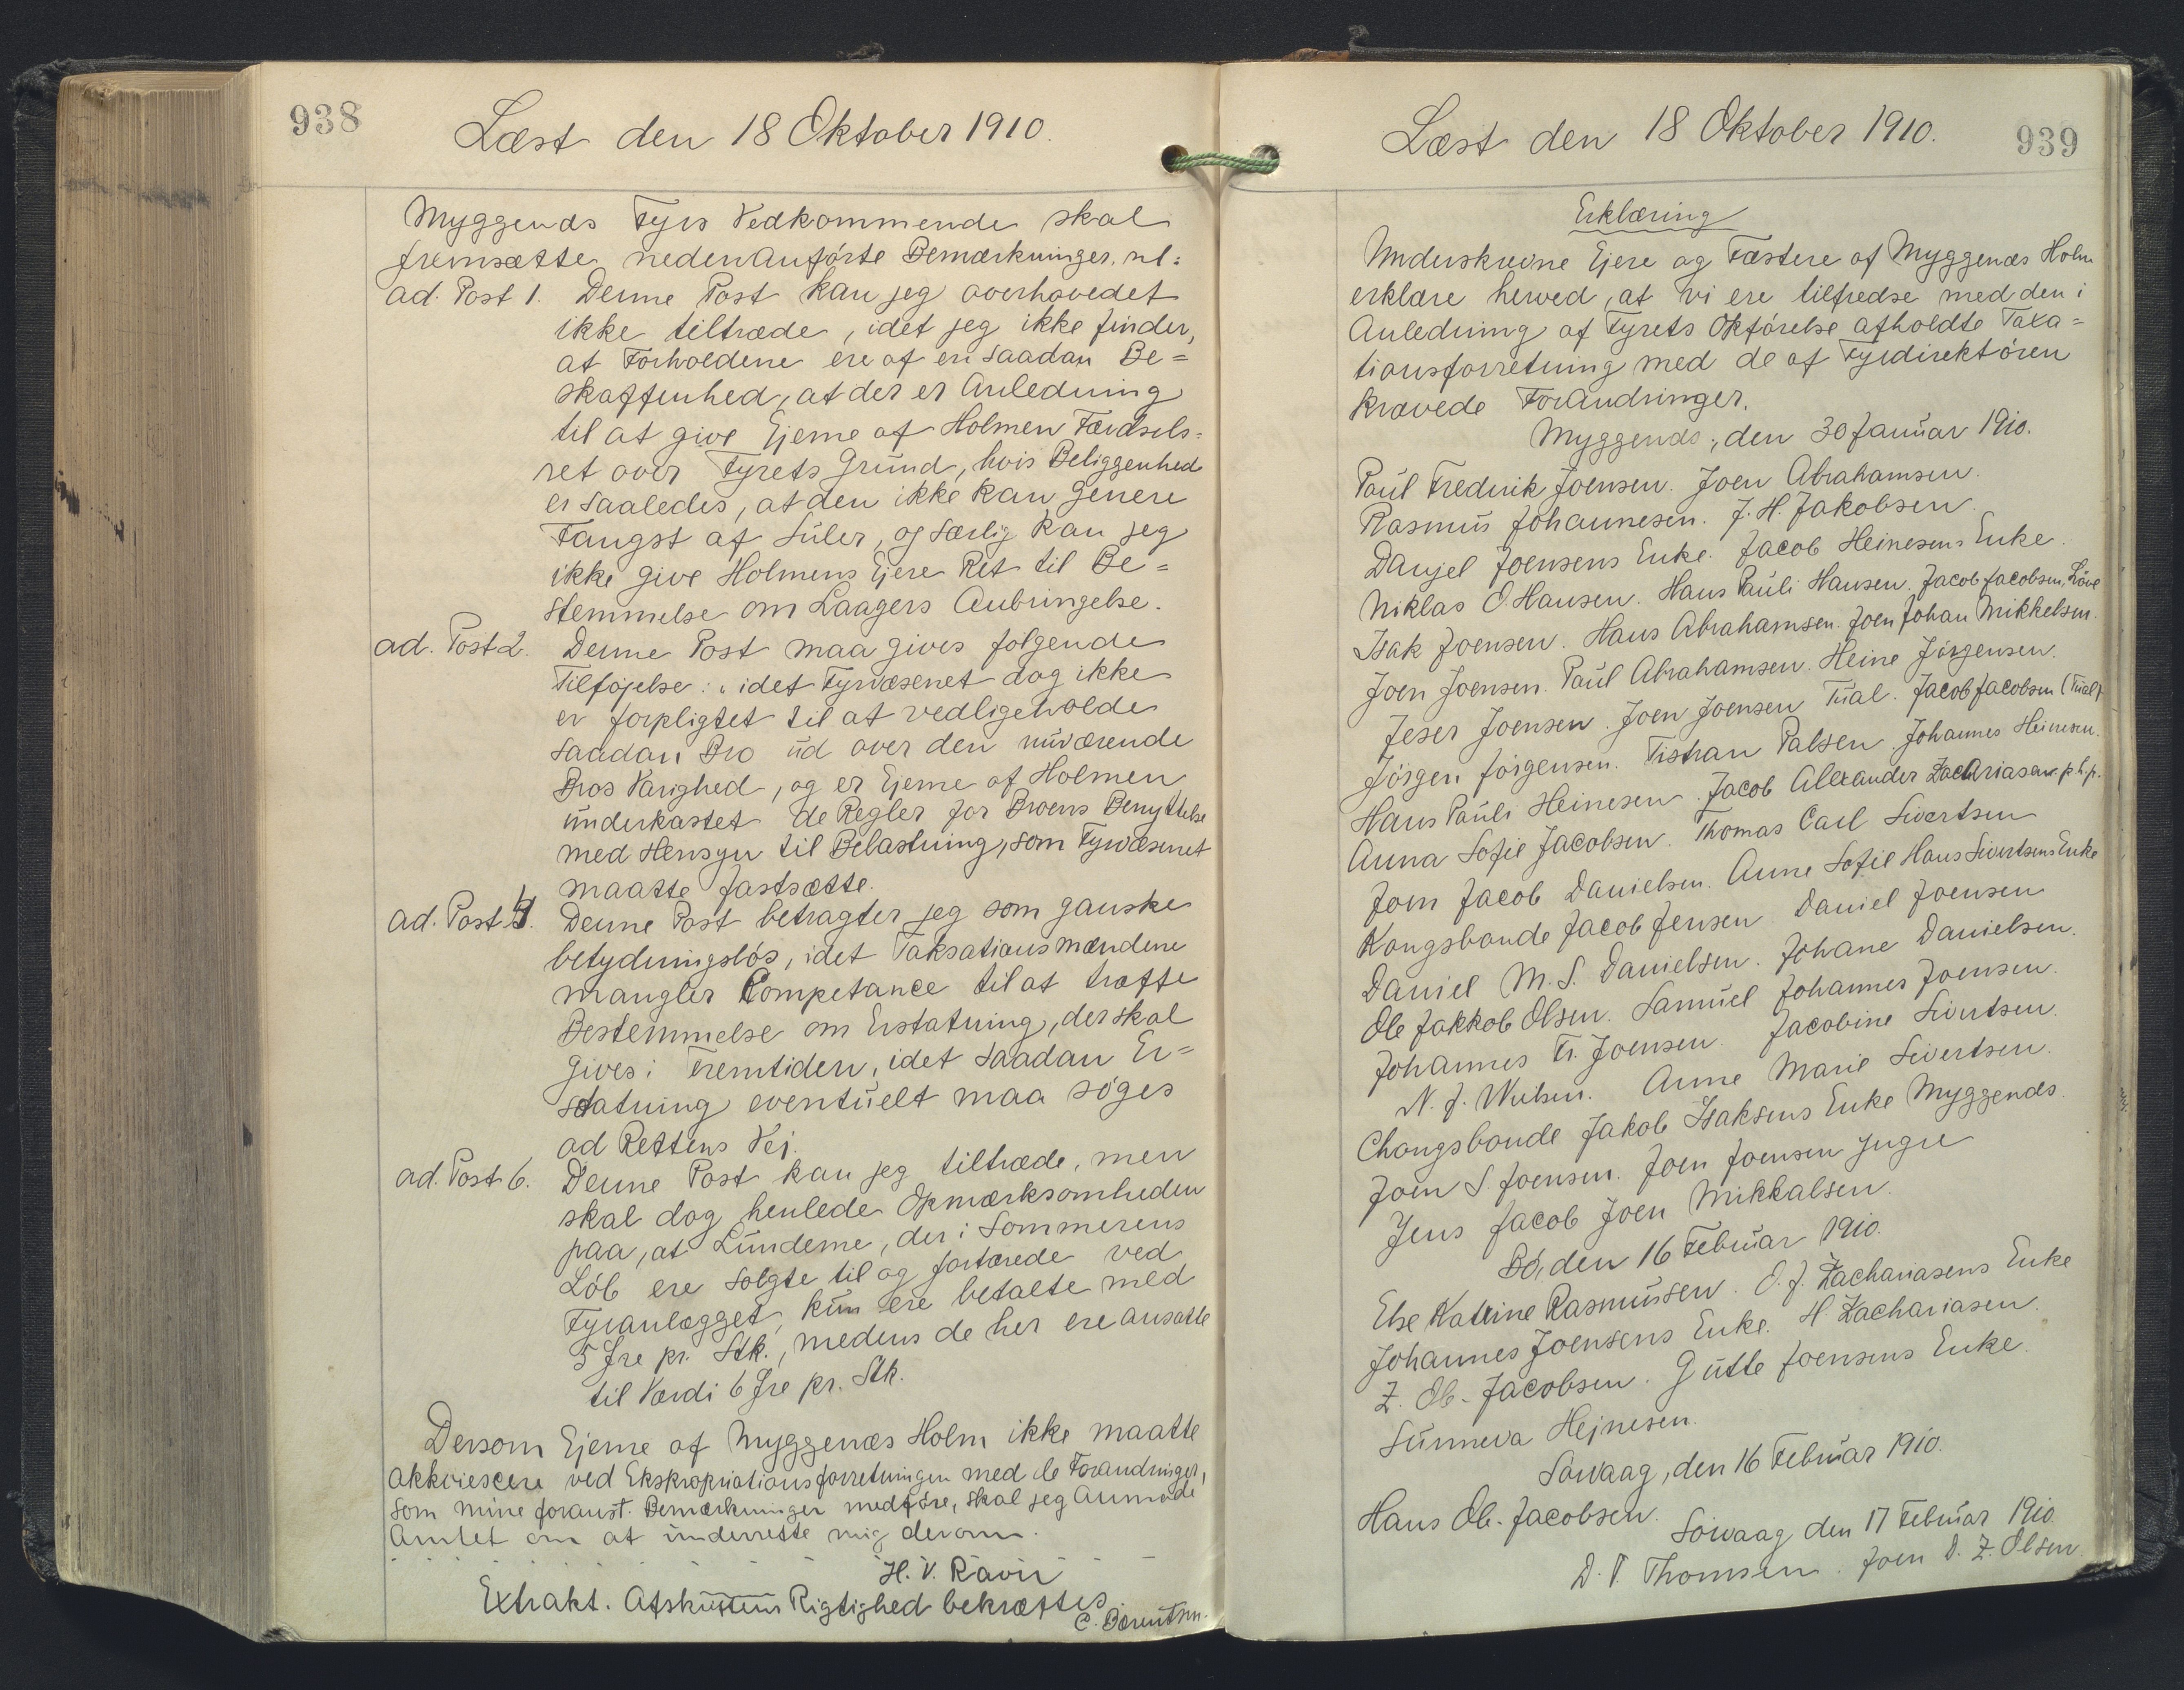 938
Læst den 18 Oktober 1910.
Myggenæs Fyrs Vedkommende skal
fremsætte nedenanførte Bemærkninger. nl:
ad. Post 1. Denne Post kan jeg overhovedet
ikke tiltræde, idet jeg ikke finder,
at Forholdene ere af en saadan Be=
skaffenhed, at der er Anledning
til at give Ejerne af Holmen Færdsels=
ret over Fyrets Grund, hvis Beliggenhed
er saaledes, at den ikke kan genere
Fangst af Súler, og særlig kan jeg
ikke give Holmens Ejere Ret til Be=
stemmelse om Laagers Anbringelse.
ad. Post 2. Denne Post maa gives følgende
Tilføjelse: "idet Fyrvæsenet dog ikke
er forpligtet til at vedligeholde
saadan Bro ud over den nuværende
Bros Varighed, og er Ejerne af Holmen
underkastet de Regler for Broens Benyttelse
med Hensyn til Belastning, som Fyrvæsenet
maatte fastsætte.
ad. Post 4. Denne Post betragter jeg som ganske
betydningsløs, idet Taksationsmændene
mangler Competance til at træffe
Bestemmelse om Erstatning, der skal
gives i Fremtiden, idet saadan Er=
statning eventuelt maa søges
ad Rettens Vej.
ad. Post 6. Denne Post kan jeg tiltræde, men
skal dog henlede Opmærksomheden
paa, at Lunderne, der i Sommerens
Løb ere solgte til og fortærede ved
Fyranlægget, kun ere betalte med
5 Øre pr. Stk., medens de her ere ansatte
til Værdi 6 Øre pr. Stk.
Dersom Ejerne af Myggenæs Holm ikke maatte
akkviescere ved Ekspropriationsforretningen med de Forandringer,
som mine foranst. Bemærkninger medføre, skal jeg anmode
Amtet om at underrette mig derom.
H. V. Ravn
Extrakt. Afskriftens Rigtighed bekræftes
C. Bærentsen.
Læst den 18 Oktober 1910.
939
Erklæring
Underskrevne Ejere og Fæstere af Myggenæs Holm
erklære herved, at vi ere tilfredse med den i
Anledning af Fyrets Opførelse afholdte Taxa=
tionsforretning med de af Fyrdirektøren
krævede Forandringer.
Myggenæs, den 30 Januar 1910.
Paul Frederik Joensen. Joen Abrahamsen.
Rasmus Johannesen. J. H. Jakobsen.
Danjel Joensens Enke. Jacob Heinesens Enke.
Niklas O. Hansen. Hans Pauli Hansen. Jacob Jacobsen, Löve
Isak Joensen. Hans Abrahamsen. Joen Johan Mikkelsen.
Joen Joensen. Paul Abrahamsen. Heine Jørgensen.
Jeser Joensen. Joen Joensen Trial. Jacob Jacobsen (Trial)
Jørgen Jørgensen. Tistran Palsen. Johannes Heinesen.
Hans Pauli Heinesen. Jacob Alexander Zachariasen. p. h. p.
Anna Sofie Jacobsen. Thomas Carl Sivertsen
Joen Jacob Danielsen. Anne Sofie Hans Sivertsens Enke
Kongsbonde Jacob Jensen Daniel Joensen
Daniel M. S. Danielsen. Johane Danielsen.
Ole Jakkob Olsen. Samuel Johannes Joensen.
Johannes Fr. Joensen. Jacobine Sivertsen.
N. J. Anne Marie Sivertsen.
Chongsbonde Jakob Isaksens Enke Myggenæs.
Joen S. Joensen. Joen Joensen Yngre
Jens Jacob Joen Mikkalsen.
Bø, den 16 Februar 1910.
Else Katrine Rasmussen. O. J. Zachariasens Enke
Johannes Joensens Enke. H. Zachariasen.
Z. Ole-Jacobsen. Gutte Joensens Enke.
Sunneva Hejnesen.
Sørvaag, den 16 Februar 1910.
Hans Ole-Jacobsen.
Sørvaag den 17 Februar 1910
D. P. Thomsen. Joen D. Z. Olsen